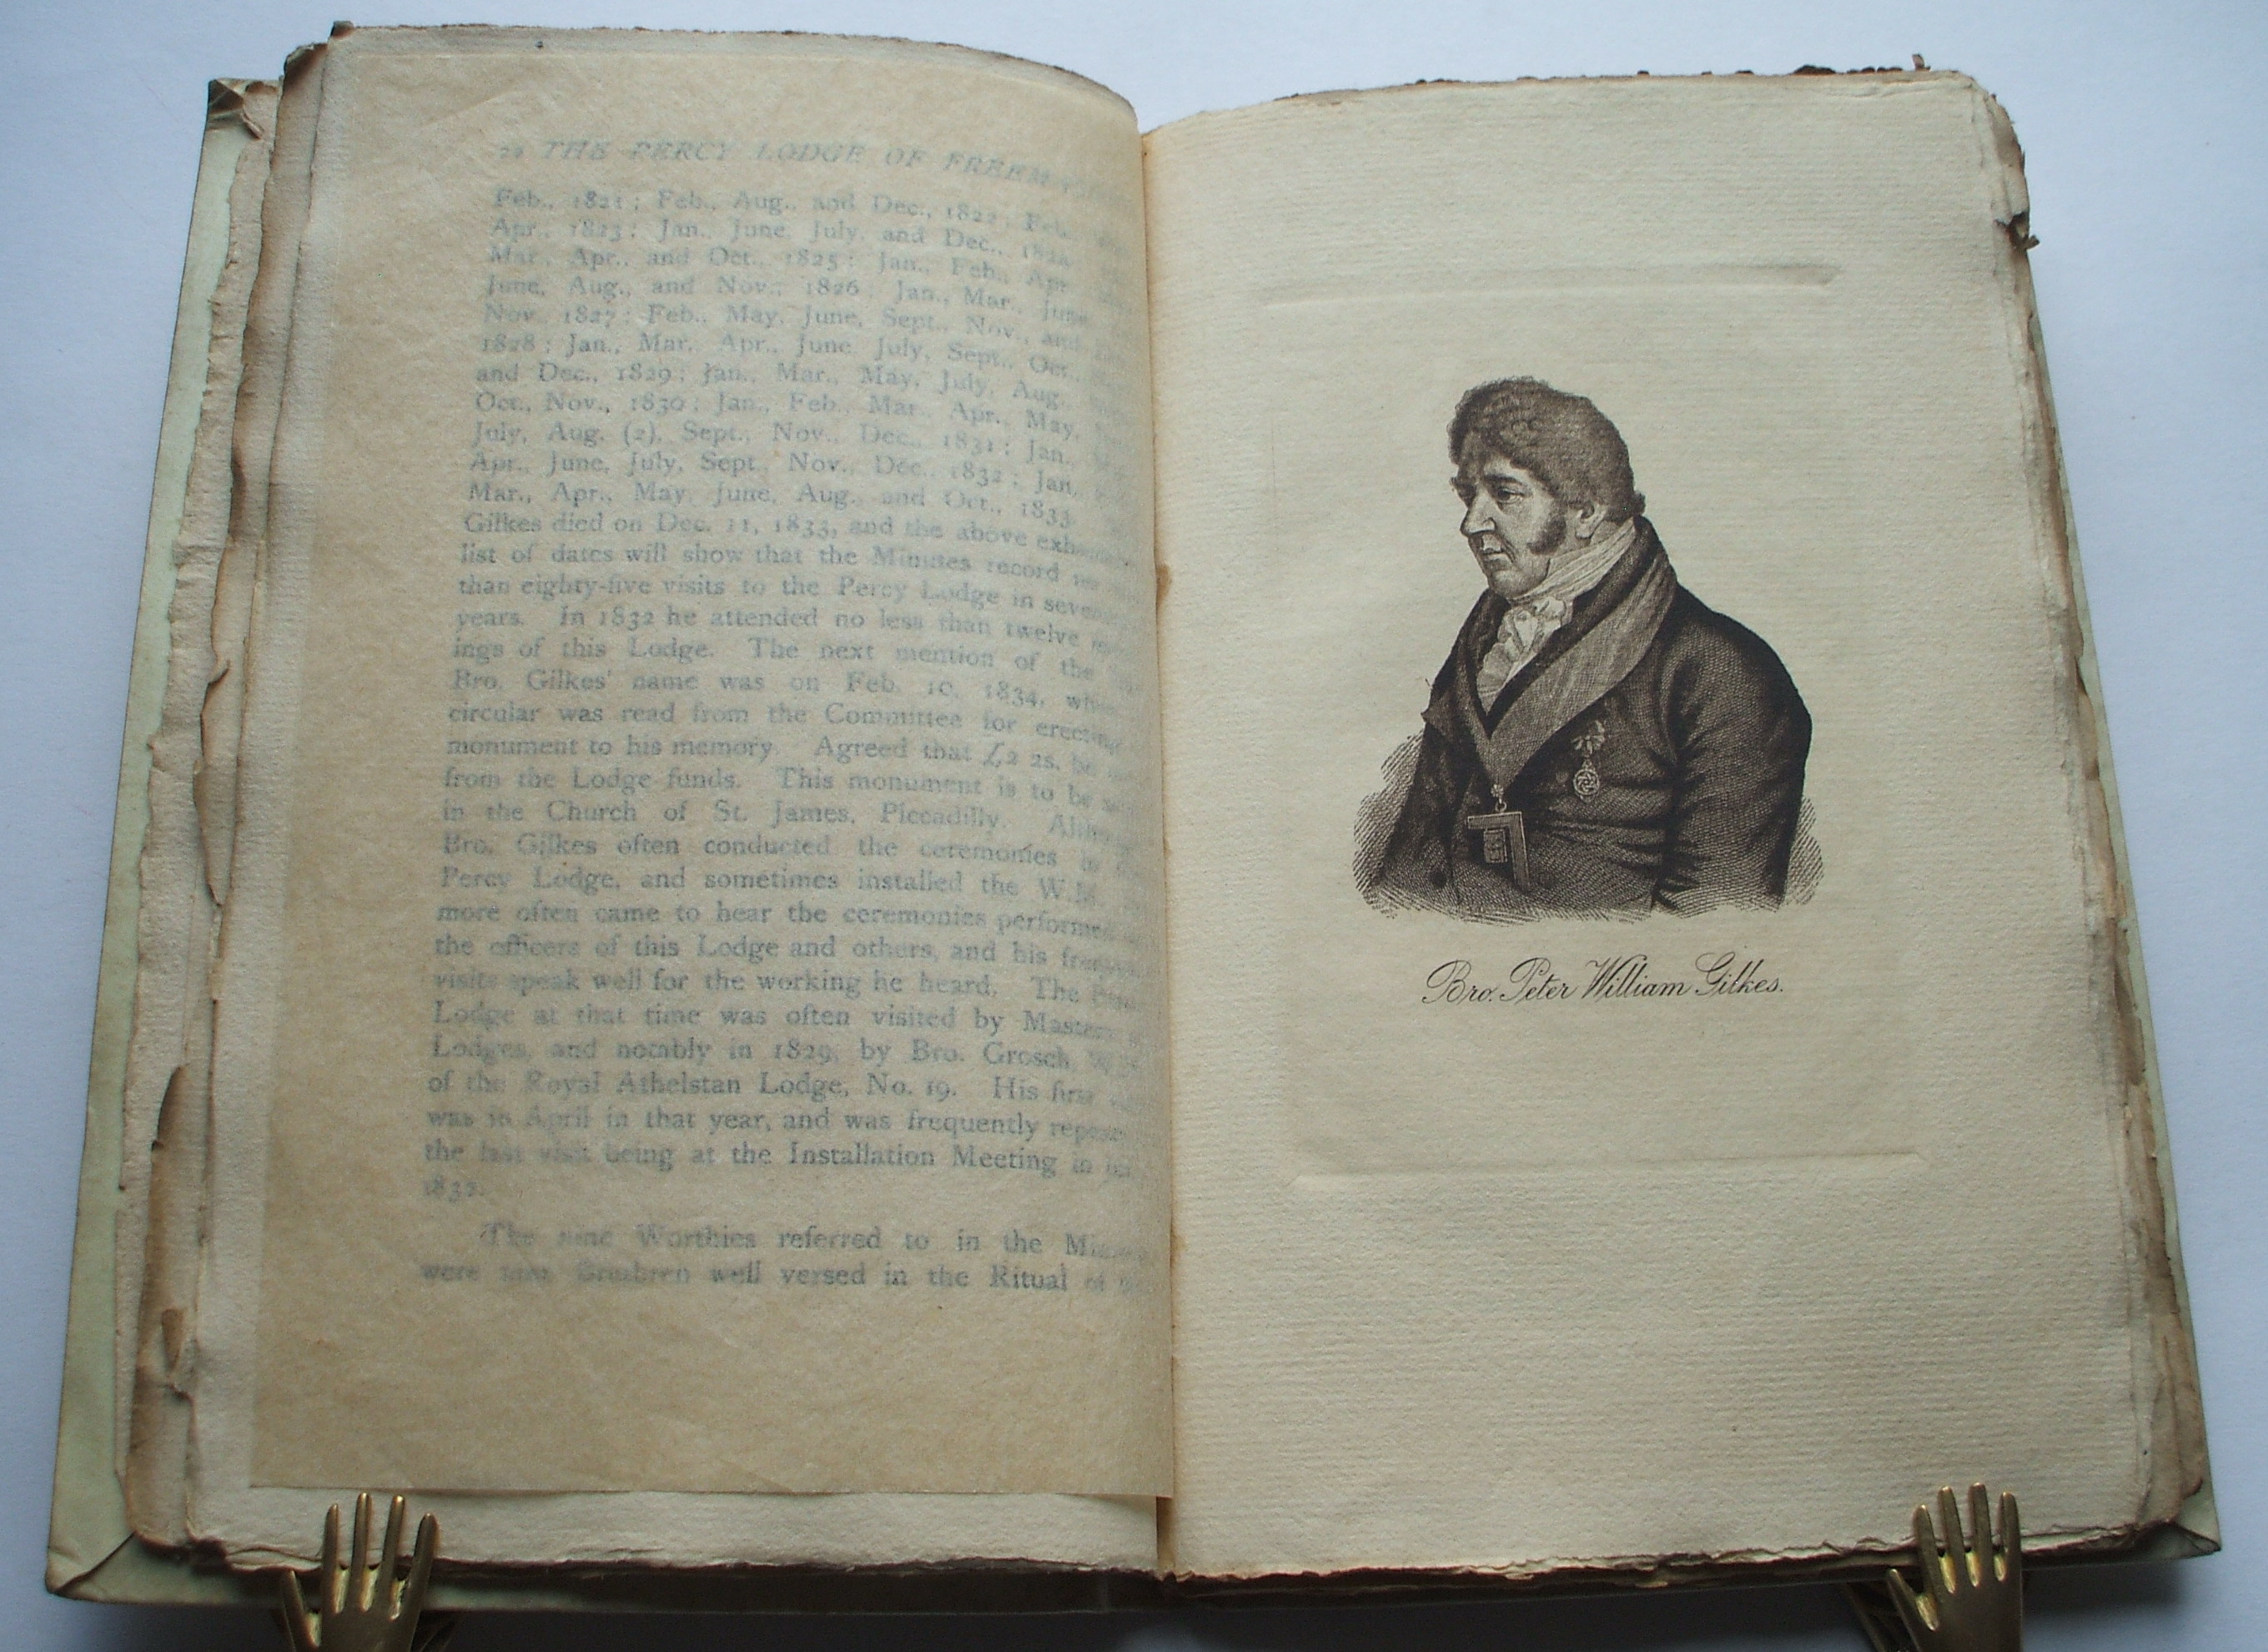 THE PERCY LODGE OF
Feb., 1821; Feb., Aug., and Dec., 1822; Feb.
Apr., 1823; Jan., June, July, and Dec.,
Mar., Apr., and Oct., 1825; Jan., Feb., Apr.
June, Aug., and Nov., 1826; Jan., Mar., June
Nov., 1827; Feb., May, June, Sept., Nov., and
1828; Jan., Mar., Apr., June, July, Sept., Oct.,
and Dec., 1829; Jan., Mar., May, July, Aug.,
Oct., Nov., 1830; Jan., Feb., Mar., Apr., May,
July, Aug. (2), Sept., Nov., Dec., 1831; Jan.,
Apr., June, July, Sept., Nov., Dec., 1832; Jan.,
Mar., Apr., May, June, Aug., and Oct., 1833.
Gilkes died on Dec. 11, 1833, and the above
list of dates will show that the Minutes record
than eighty-five visits to the Percy Lodge in
years. In 1832 he attended no less than twelve
ings of this Lodge. The next mention of the
Bro. Gilkes' name was on Feb. 10, 1834,
circular was read from the Committee for
monument to his memory. Agreed that £2 2s. be
from the Lodge funds. This monument is to be
in the Church of St. James, Piccadilly.
Bro. Gilkes often conducted the ceremonies
Percy Lodge, and sometimes installed the W.M.
more often came to hear the ceremonies
the officers of this Lodge and others, and his
visits speak well for the working he heard. The
Lodge at that time was often visited by
Lodges, and notably in 1829, by Bro. Grosch,
of the Royal Athelstan Lodge, No. 19. His first
was in April in that year, and was frequently
the last visit being at the Installation Meeting in
The nine Worthies referred to in the
were Brethren well versed in the Ritual of
Bro. Peter William Gilkes.